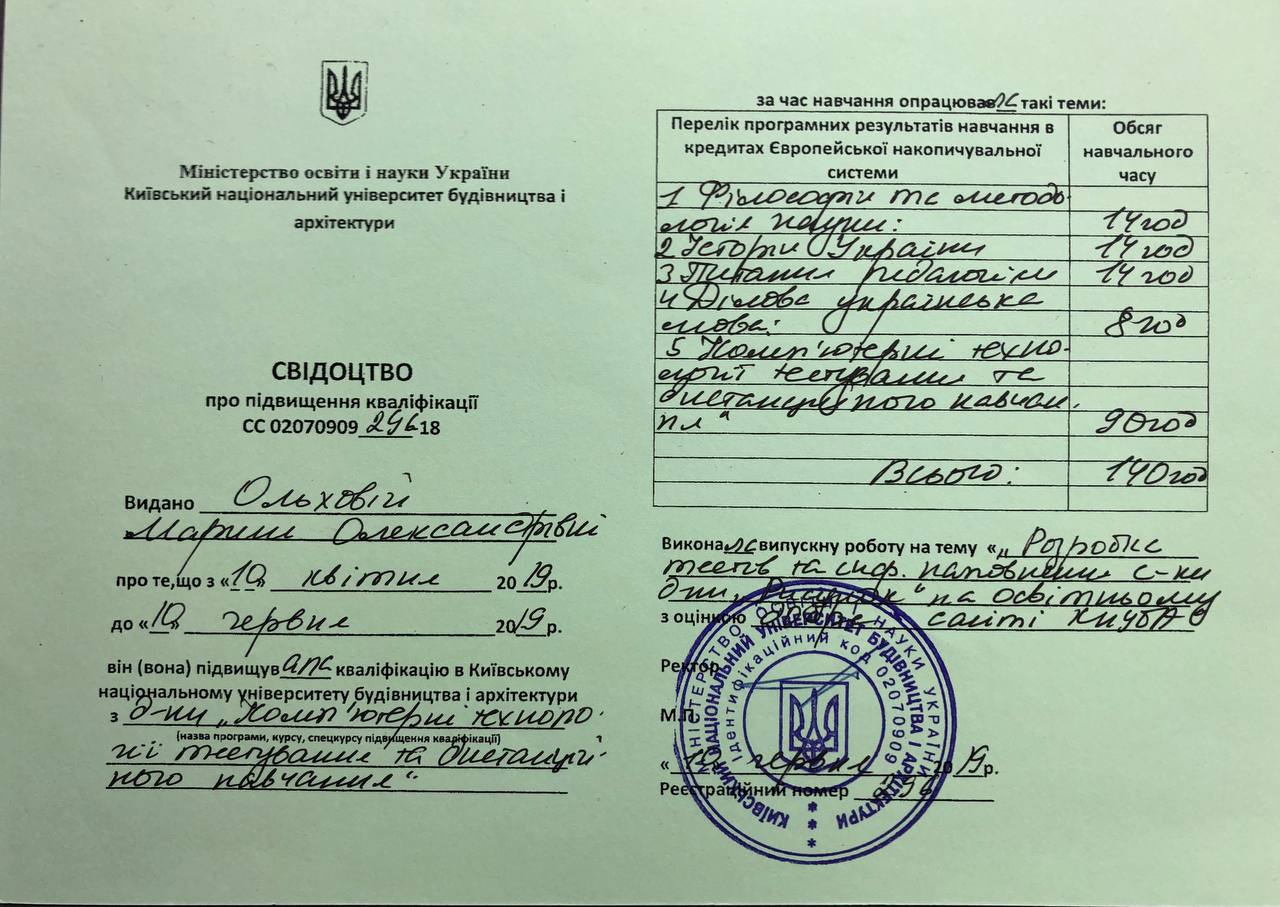 Міністерство освіти і науки України
Київський національний університет будівництва і
архітектури
СВІДОЦТВО
про підвищення кваліфікації
СС 02070909 296 18
Видано Ольховій
Марині Олександрівні
про те,що з «10» квітня 2019р.
до «10» червня 2019р.
він (вона) підвищувала кваліфікацію в Київському
національному університету будівництва і архітектури
з д-ни „Комп'ютерні техноло-
(назва програми, курсу, спецкурсу підвищення кваліфікації)
гії тестування та дистанцій-
ного навчання“
за час навчання опрацювала такі теми:
Перелік програмних результатів навчання в кредитах Європейської накопичувальної системи
Обсяг навчального часу
1 Філософія та методо-
логія науки: 14 год
2 Історія України 14 год
3 Питання педагогіки 14 год
4 Ділова українська
мова: 8 год
5 Комп'ютерні техно-
логії тестування та
дистанційного навчан-
ня“ 90 год
Всього: 140 год
Виконала випускну роботу на тему «„Розробка
тестів та інф. наповнення с-ки
д-ни „Рисунок“ на освітньому
з оцінкою сайті КНУБА»
Ректор
М.П.
«10» червня 2019р.
Реєстраційний номер 296
МІНІСТЕРСТВО ОСВІТИ І НАУКИ УКРАЇНИ
КИЇВСЬКИЙ НАЦІОНАЛЬНИЙ УНІВЕРСИТЕТ БУДІВНИЦТВА І АРХІТЕКТУРИ
Ідентифікаційний код 02070909